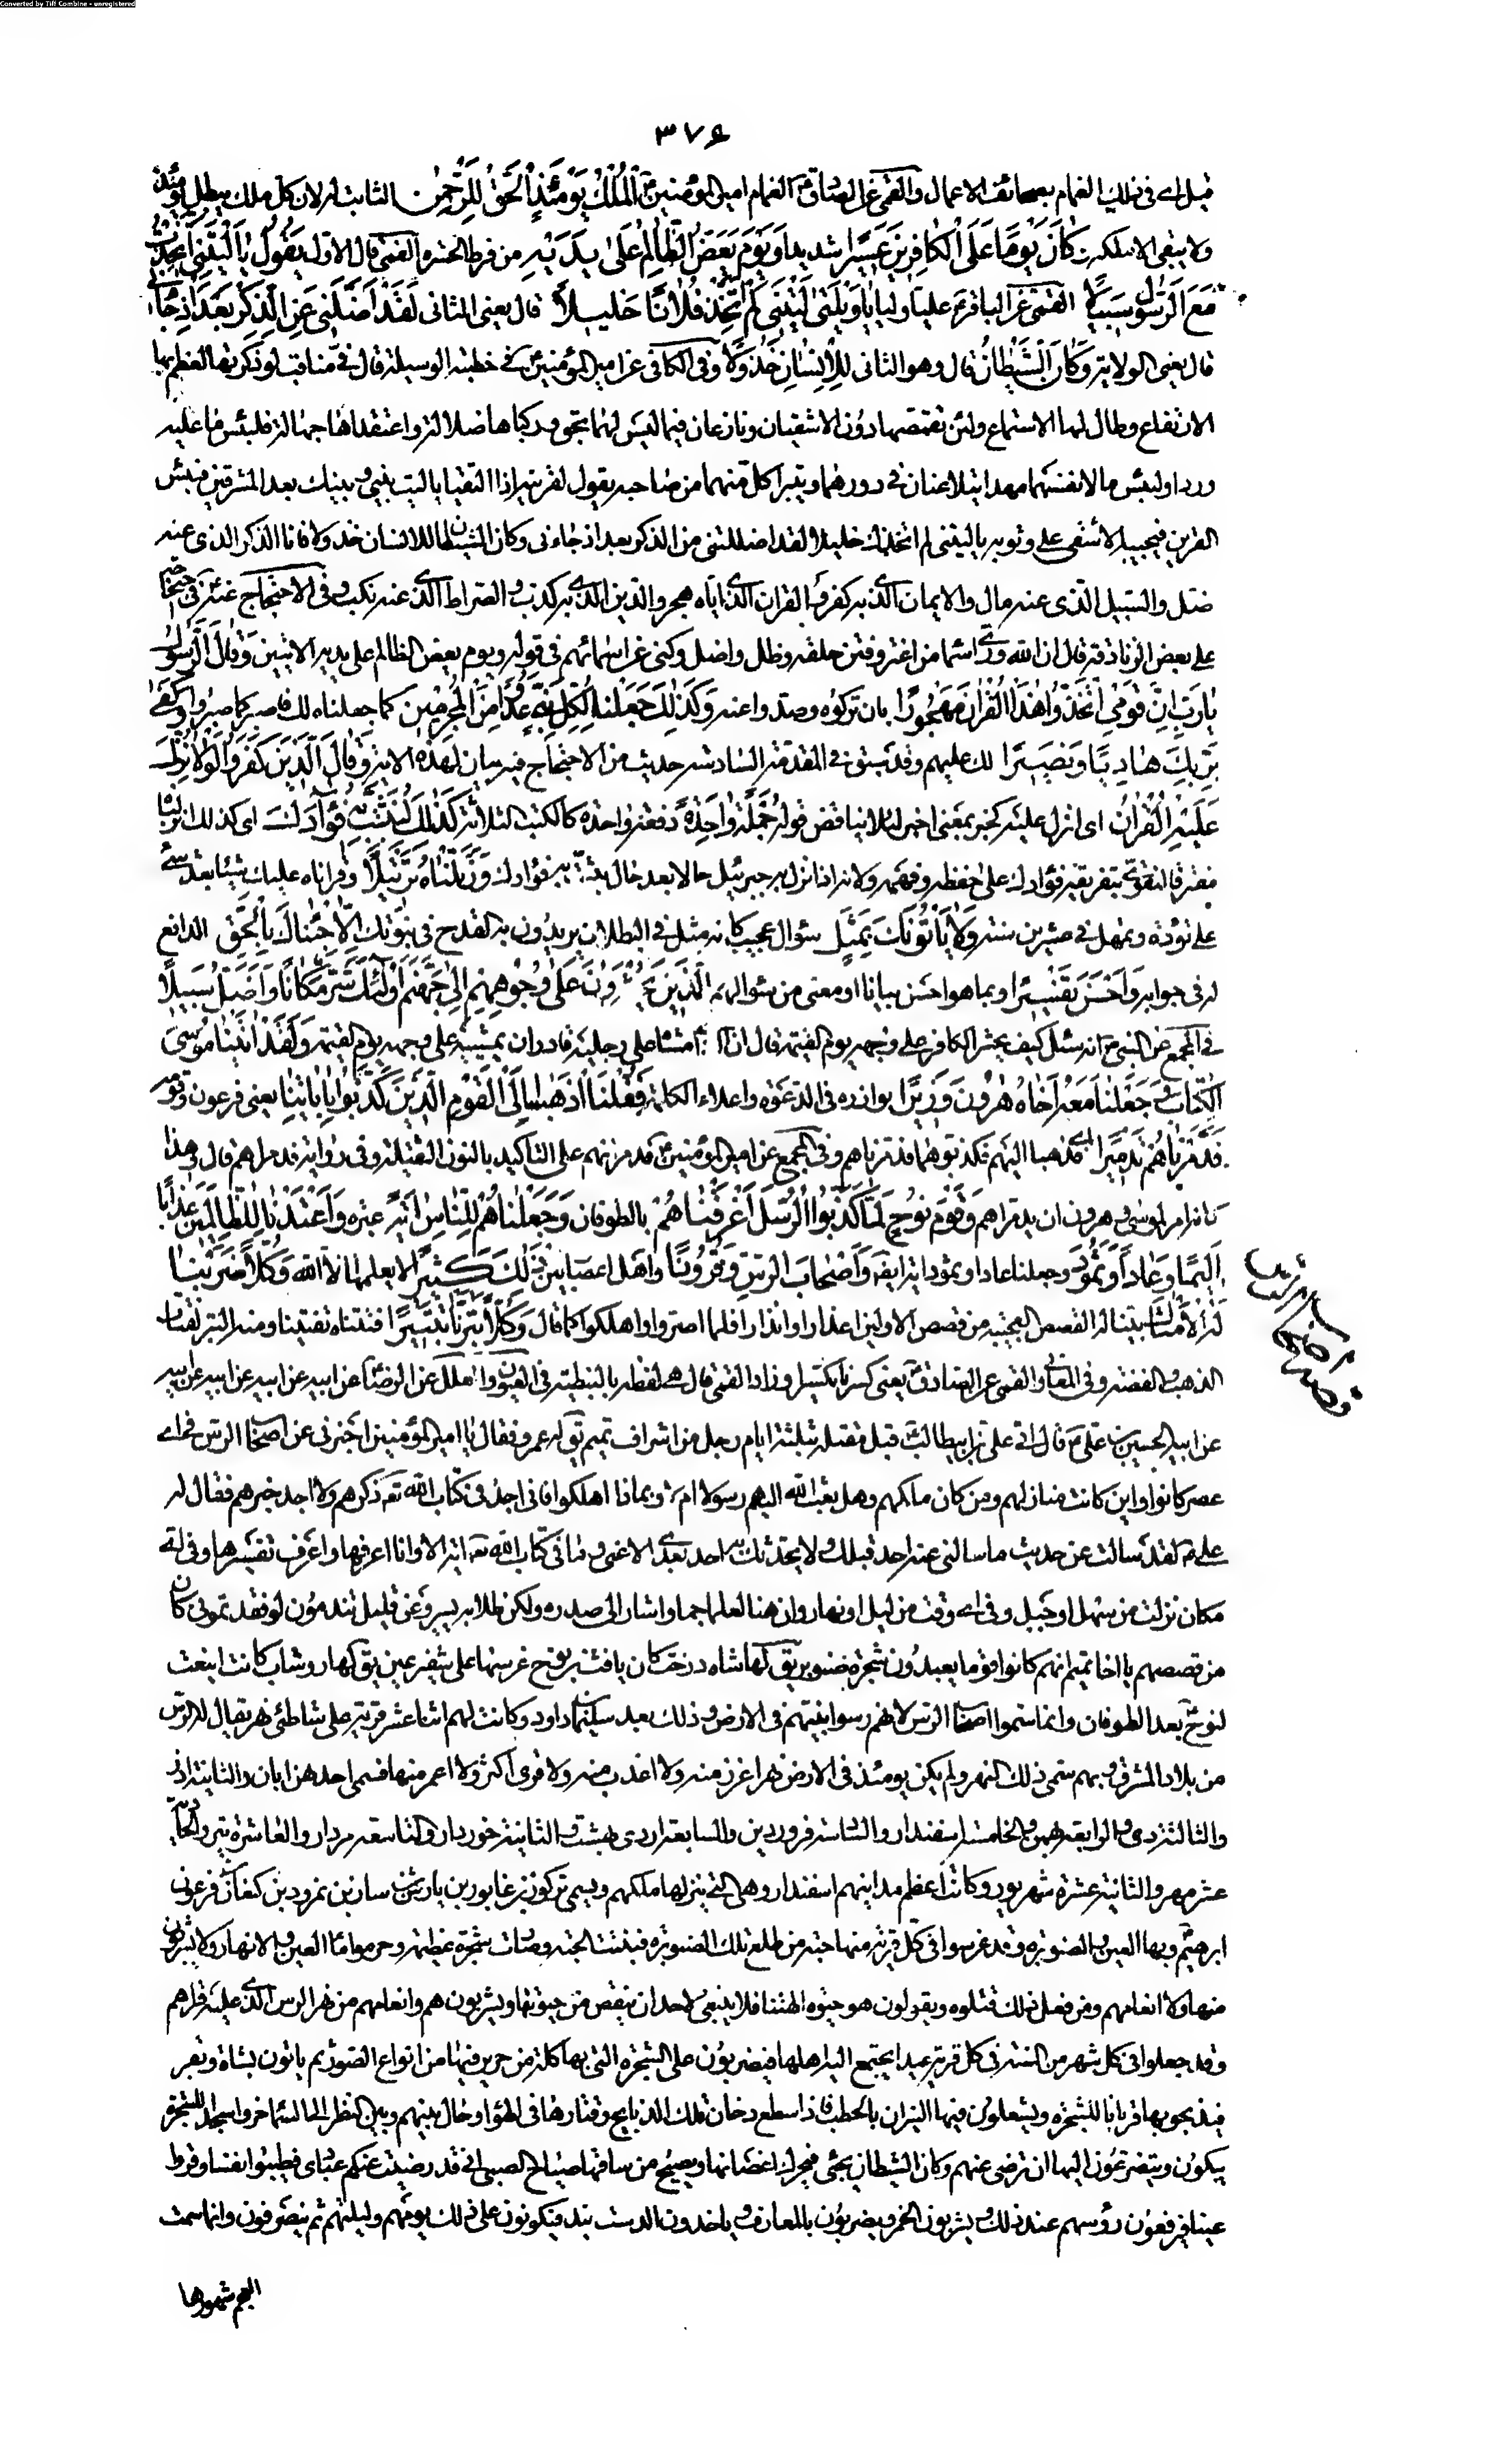 Converted by Tiff Combine - unregistered
۳۷۶
قيل اى فى ذلك الغمام بصحائف الاعمال والقمى عن الصادق الغمام امير المؤمنين المُلْكُ يَوْمَئِذٍ الْحَقُّ لِلرَّحْمٰنِ الثابت له لان كل ملك يبطل يومئذ
ولا يبقى الا ملكه وَكَانَ يَوْمًا عَلَى الْكَافِرِينَ عَسِيرًا شديدا وَيَوْمَ يَعَضُّ الظَّالِمُ عَلَى يَدَيْهِ من فرط الحسرة القمى قال الاول يَقُولُ يَا لَيْتَنِي اتَّخَذْتُ
مَعَ الرَّسُولِ سَبِيلًا القمى عن الباقر ع عليا وليا يَا وَيْلَتَى لَيْتَنِي لَمْ أَتَّخِذْ فُلَانًا خَلِيلًا قال يعنى الثانى لَقَدْ أَضَلَّنِي عَنِ الذِّكْرِ بَعْدَ إِذْ جَاءَنِي
قال يعنى الولاية وَكَانَ الشَّيْطَانُ قال وهو الثانى لِلْإِنْسَانِ خَذُولًا وفى الكافى عن امير المؤمنين ع فى خطبته الوسيلة قال فى مناقب لو ذكرتها لعظم بها
الارتفاع وطال لها الاستماع ولئن تقمصها دونى الاشقيان ونازعانى فيما ليس لهما بحق وركباها ضلالة واعتقداها جهالة فلبئس ما عليه
وردا ولبئس ما لانفسهما مهدا يتلاعنان فى دورهما ويتبرأ كل منهما من صاحبه يقول لقرينه اذا التقيا يا ليت بينى وبينك بعد المشرقين فبئس
القرين فيجيبه الاشقى على وثوبه يا ليتنى لم اتخذك خليلا لقد اضللتنى عن الذكر بعد اذ جاءنى وكان الشيطان للانسان خذولا فانا الذكر الذى عنه
ضل والسبيل الذى عنه مال والايمان الذى به كفر والقران الذى اياه هجر والدين الذى به كذب والصراط الذى عنه نكب وفى الاحتجاج عنه ع فى احتجاجه
على بعض الزنادقة قال ان الله ورى اسماء من اغتر وفتن خلقه وضل واضل وكنى عن اسمائهم فى قوله ويوم يعض الظالم على يديه الايتين وَقَالَ الرَّسُولُ
يَا رَبِّ إِنَّ قَوْمِي اتَّخَذُوا هَذَا الْقُرْآنَ مَهْجُورًا بان تركوه وصدوا عنه وَكَذَلِكَ جَعَلْنَا لِكُلِّ نَبِيٍّ عَدُوًّا مِنَ الْمُجْرِمِينَ كما جعلناه لك فاصبر كما صبروا وَكَفَى
بِرَبِّكَ هَادِيًا وَنَصِيرًا لك عليهم وقد سبق فى المقدمة السادسة حديث من الاحتجاج فيه بيان لهذه الاية وَقَالَ الَّذِينَ كَفَرُوا لَوْلَا نُزِّلَ
عَلَيْهِ الْقُرْآنُ اى انزل عليه كخبر بمعنى اخبر لئلا يناقض قوله جُمْلَةً وَاحِدَةً دفعة واحدة كالكتب الثلاثة كَذَلِكَ لِنُثَبِّتَ بِهِ فُؤَادَكَ اى كذلك انزلناه
مفرقا لنقوى بتفريقه فؤادك على حفظه وفهمه ولانه اذا نزل به جبرئيل حالا بعد حال يثبت به فؤادك وَرَتَّلْنَاهُ تَرْتِيلًا وقراناه عليك شيئا بعد شىء
على تؤدة وتمهل فى عشرين سنة وَلَا يَأْتُونَكَ بِمَثَلٍ سؤال عجيب كانه مثل فى البطلان يريدون به القدح فى نبوتك إِلَّا جِئْنَاكَ بِالْحَقِّ الدافع
له فى جوابه وَأَحْسَنَ تَفْسِيرًا وبما هو احسن بيانا او معنى من سؤالهم الَّذِينَ يُحْشَرُونَ عَلَى وُجُوهِهِمْ إِلَى جَهَنَّمَ أُولَئِكَ شَرٌّ مَكَانًا وَأَضَلُّ سَبِيلًا
فى المجمع عن النبى ص انه سئل كيف يحشر الكافر على وجهه يوم القيمة قال ان الذى امشاه على رجليه قادر ان يمشيه على وجهه يوم القيمة وَلَقَدْ آتَيْنَا مُوسَى
الْكِتَابَ وَجَعَلْنَا مَعَهُ أَخَاهُ هَارُونَ وَزِيرًا يوازره فى الدعوة واعلاء الكلمة فَقُلْنَا اذْهَبَا إِلَى الْقَوْمِ الَّذِينَ كَذَّبُوا بِآيَاتِنَا يعنى فرعون وقومه
فَدَمَّرْنَاهُمْ تَدْمِيرًا اى فذهبا اليهم فكذبوهما فدمرناهم وفى المجمع عن امير المؤمنين ع فدمرانهم على التاكيد بالنون الثقيلة وفى رواية فدمراهم قال وهذا
كانه امر لموسى وهرون ان يدمراهم وَقَوْمَ نُوحٍ لَمَّا كَذَّبُوا الرُّسُلَ أَغْرَقْنَاهُمْ بالطوفان وَجَعَلْنَاهُمْ لِلنَّاسِ آيَةً عبرة وَأَعْتَدْنَا لِلظَّالِمِينَ عَذَابًا
أَلِيمًا وَعَادًا وَثَمُودَ وجعلنا عادا وثمود اية ايضا وَأَصْحَابَ الرَّسِّ وَقُرُونًا واهل اعصار بَيْنَ ذَلِكَ كَثِيرًا لا يعلمها الا الله وَكُلًّا ضَرَبْنَا
لَهُ الْأَمْثَالَ بينا له القصص العجيبة من قصص الاولين اعذارا وانذارا فلما اصروا اهلكوا كما قال وَكُلًّا تَبَّرْنَا تَتْبِيرًا فتتناه تفتيتا ومنه التبر لفتات
الذهب والفضة وفى المعانى والقمى عن الصادق ع يعنى كسرنا تكسيرا وزاد القمى قال هى لفظه بالنبطية فى العيون والعلل عن الرضا عن ابيه عن ابيه عن ابيه عن ابيه
عن ابيه الحسين بن على ع قال اتى على بن ابيطالب ع قبل مقتله بثلثة ايام رجل من اشراف تميم يق له عمرو فقال يا امير المؤمنين اخبرنى عن اصحاب الرس فى اى
عصر كانوا واين كانت منازلهم ومن كان ملكهم وهل بعث الله اليهم رسولا ام لا وبماذا اهلكوا فانى اجد فى كتاب الله تع ذكرهم ولا اجد خبرهم فقال له
على ع لقد سالت عن حديث ما سالنى عنه احد قبلك ولا يحدثك به احد بعدى الا عنى وما فى كتاب الله تع اية الا وانا اعرفها واعرف تفسيرها وفى اى
مكان نزلت من سهل او جبل وفى اى وقت من ليل او نهار وان هنا لعلما جما واشار الى صدره ولكن طلابه يسير وعن قليل تندمون لو فقدتمونى كان
من قصصهم يا اخا تميم انهم كانوا قوما يعبدون شجرة صنوبر يق لها شاه درخت كان يافث بن نوح غرسها على شفير عين يق لها روشاب كانت انبعت
لنوح ع بعد الطوفان وانما سموا اصحاب الرس لانهم رسوا نبيهم فى الارض وذلك بعد سليمان بن داود وكانت لهم اثنا عشر قرية على شاطئ نهر يقال له الرس
من بلاد المشرق وبهم سمى ذلك النهر ولم يكن يومئذ فى الارض نهر اغزر منه ولا اعذب منه ولا قرى اكثر ولا اعمر منها فسمى احدهن ابان والثانية اذر
والثالثة دى والرابعة بهمن والخامسة اسفندار والسادسة فروردين والسابعة اردى بهشت والثامنة خورداد والتاسعة مرداد والعاشرة تير والحادية
عشر مهر والثانية عشرة شهريور وكانت اعظم مداينهم اسفندار وهى التى ينزلها ملكهم ويسمى تركوز بن غابور بن يارش بن سازن بن نمرود بن كنعان فرعون
ابرهيم ع وبها العين والصنوبرة وقد غرسوا فى كل قرية منها حبة من طلع تلك الصنوبرة فنبتت الحبة وصارت شجرة عظيمة وحرموا ماء العين والانهار ولا يشربون
منها ولا انعامهم ومن فعل ذلك قتلوه ويقولون هو حيوة الهتنا فلا ينبغى لاحد ان ينقص من حيوتها ويشربون هم وانعامهم من نهر الرس الذى عليه قراهم
وقد جعلوا فى كل شهر من السنة فى كل قرية عيدا يجتمع اليه اهلها فيضربون على الشجرة التى بها كلة من حرير فيها من انواع الصور ثم ياتون بشاة وبقر
فيذبحونها قربانا للشجرة ويشعلون فيها النيران بالحطب فاذا سطع دخان تلك الذبايح وقتارها فى الهواء وحال بينهم وبين النظر الى السماء خروا سجدا للشجرة
يبكون ويتضرعون اليها ان ترضى عنهم وكان الشيطان يجىء فيحرك اغصانها ويصيح من ساقها صياح الصبى انى قد رضيت عنكم عبادى فطيبوا نفسا وقروا
عينا فيرفعون رؤسهم عند ذلك ويشربون الخمر ويضربون بالمعازف وياخذون الدست بند فيكونون على ذلك يومهم وليلتهم ثم ينصرفون وانما سمت
العجم شهورها
قصه اصحاب الرس